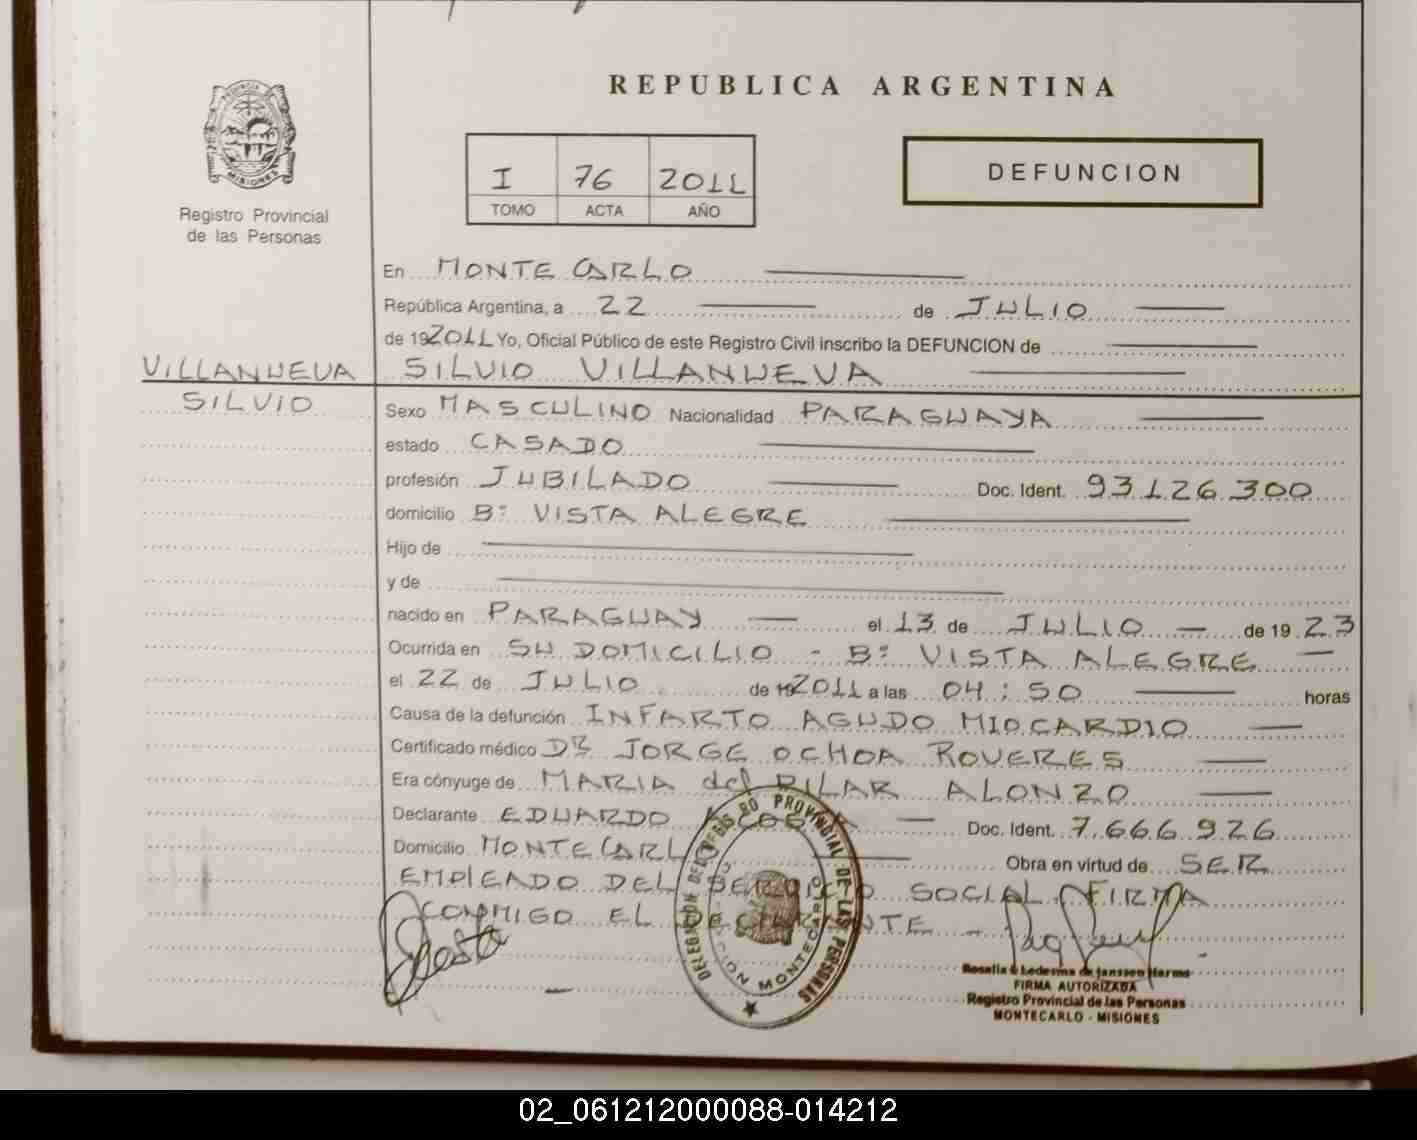 REPUBLICA ARGENTINA
PROVINCIA
MISIONES
Registro Provincial
de las Personas
I 76 2011
TOMO ACTA AÑO
DEFUNCION
En MONTE CARLO
República Argentina, a 22 de JULIO
de 192011 Yo, Oficial Público de este Registro Civil inscribo la DEFUNCION de
VILLANUEVA SILVIO VILLANUEVA
SILVIO
Sexo MASCULINO Nacionalidad PARAGUAYA
estado CASADO
profesión JUBILADO Doc. Ident. 93.126.300
domicilio Bº VISTA ALEGRE
Hijo de
y de
nacido en PARAGUAY el 13 de JULIO de 19 23
Ocurrida en SU DOMICILIO - Bº VISTA ALEGRE
el 22 de JULIO de 192011 a las 04:50 horas
Causa de la defunción INFARTO AGUDO MIOCARDIO
Certificado médico DR JORGE OCHOA ROVERES
Era cónyuge de MARIA del PILAR ALONZO
Declarante EDUARDO Doc. Ident. 7.666.926
Domicilio MONTECARLO Obra en virtud de SER
EMPLEADO DEL SERVICIO SOCIAL. FIRMA
CONMIGO EL DECLARANTE -
DELEGACION DEL REGISTRO PROVINCIAL DE LAS PERSONAS
MONTECARLO
Rosalia Ledesma de Janssen Harms
FIRMA AUTORIZADA
Registro Provincial de las Personas
MONTECARLO - MISIONES
02_061212000088-014212